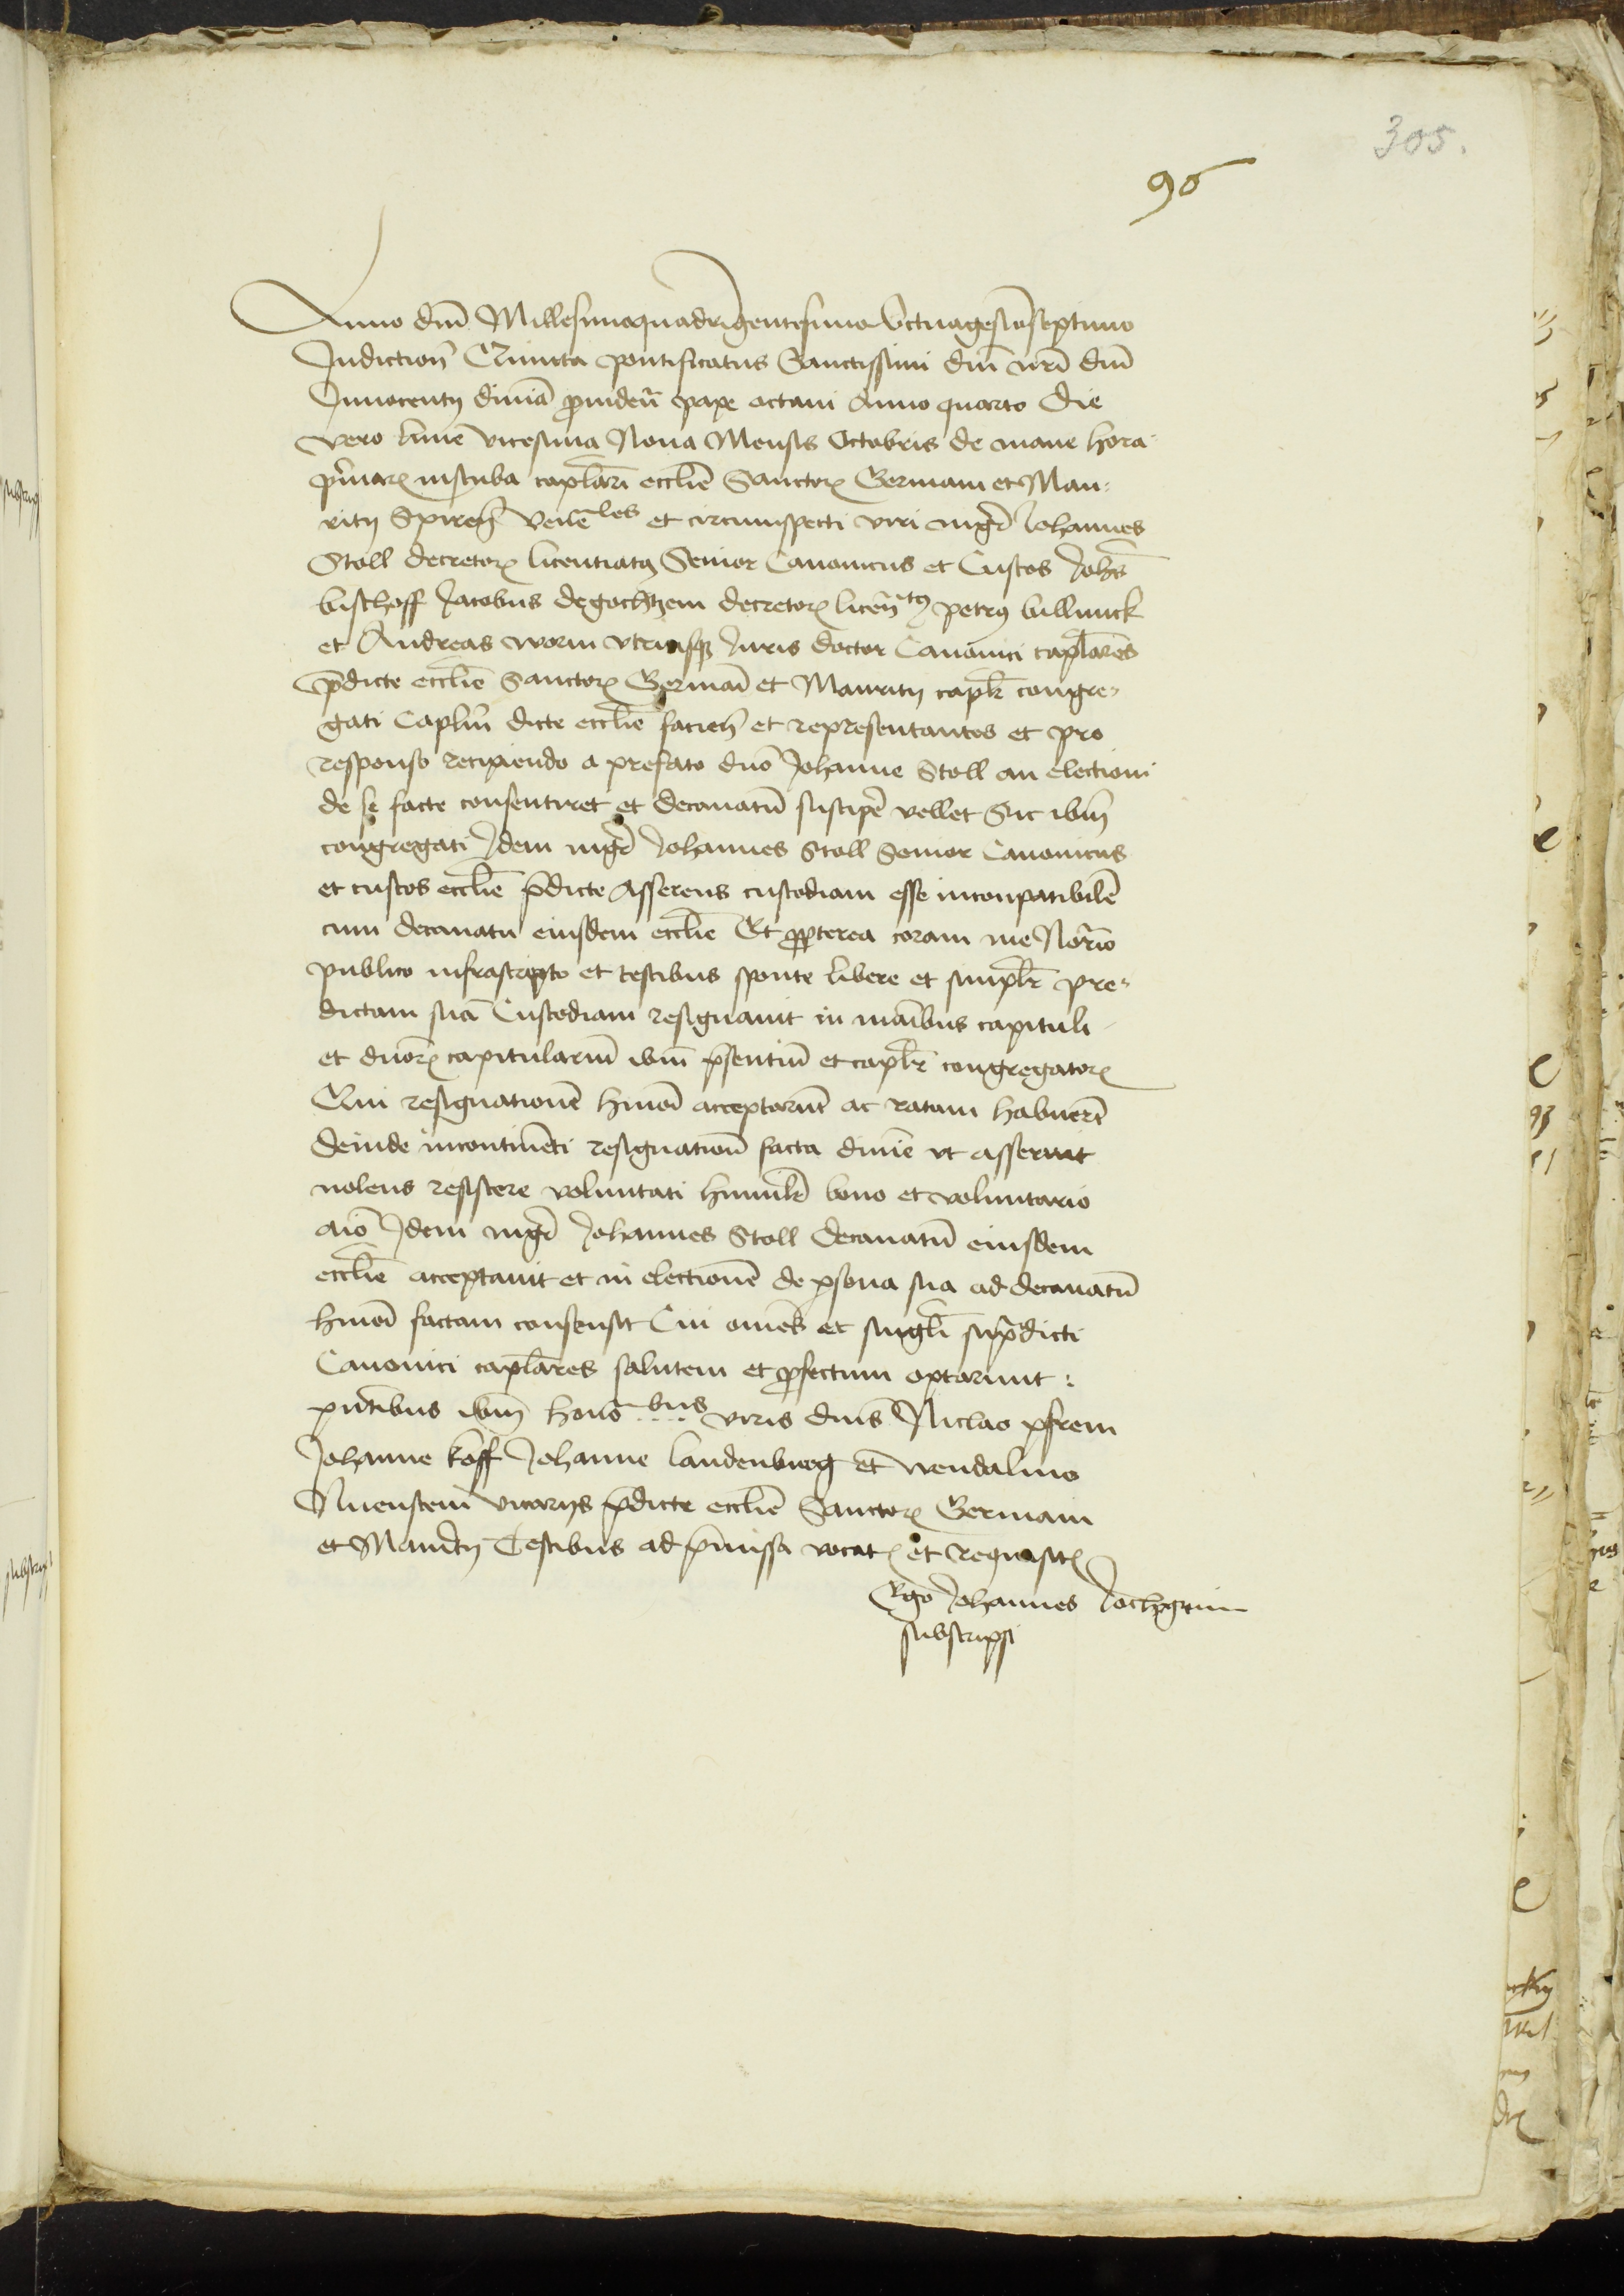 305.
96
Anno dn̄i Millesimoquadringentesimo Octuagesīoseptimo
Indiction̄ Quinta pontificatus Sanctissimi dn̄i nr̄i dn̄i
Innocentij diuīa ꝓuiden̄ pape octaui Anno quarto Die
vero lune vicesima Nona Mensis Octobris de mane hora
pͥmaꝝ in stuba caplari eccl̄ie Sanctoꝝ Germani et Mau꞊
ritij Spiren̄ Ven̄eles et circumspecti viri mgr̄ Johannes
Stoll decretoꝝ licentiatꝰ Senior Canonicus et Custos Joh̄s
bischoff Jacobus de gochtzem decretoꝝ licen̄tꝰ petrꝰ billunck
et Andreas worm vtriusqꝫ Juris doctor Canonici capl̄ares
p̄dicte eccl̄ie Sanctoꝝ Germāi et Mauritij caplr̄ congre꞊
gati Caplm̄ dicte eccl̄ie facien̄ et representantes et pro
responso recipiendo a prefato dn̄o Johanne Stoll an electioni
de se facte consentiret et decanatū suscipe᷑ vellet Sic ibm̄
congregati Idem mgr̄ Johannes Stoll Senior Canonicus
et custos eccl̄ie p̄dicte Asserens custodiam esse inconpatibilē
cum decanatu eiusdem eccl̄ie Et ꝓpterea coram me Notͣrio
publico infrascripto et testibus sponte libere et simplr̄ pre꞊
dictam suā Custodiam resignauit in māibus capituli
et dn̄oꝝ capitulariū ibm̄ p̄sentiū et caplr̄ congregatoꝝ
Qui resignationē hmōi acceptarūt ac ratam habuerūt
deinde incontinēti resignation̄ facta diuine vt asseruit
nolens resistere voluntati humilr̄ bono et voluntario
aīo Idem mgr̄ Johannes Stoll decanatū eiusdem
eccl̄ie acceptauit et in electionē de ꝑsona sua ad decanatū
hmōi factam consensit Cui om̄es et singl̄i sup̄dicti
Canonici capl̄ares salutem et ꝓfectum optarunt :
pn̄tibus ibm̄ honobus viris dn̄is Niclao pfrem
Johanne koff Johanne landenburg et wendalino
Nuenstein vicarijs p̄dicte eccl̄ie Sanctoꝝ Germani
et Mauritij Testibus ad p̄missa vocatꝭ et requisitꝭ
Ego Johannes Jochgrim
subscripsi